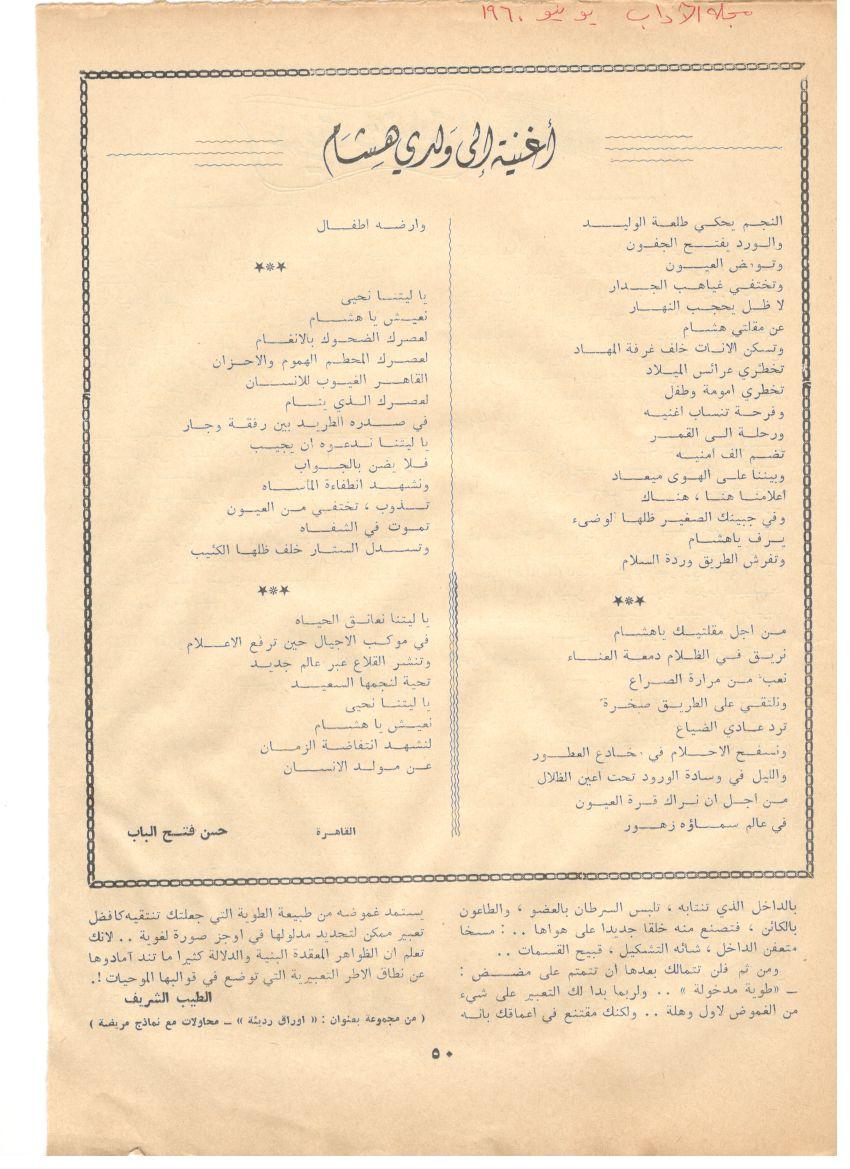 مجلة الآداب يونيو ١٩٦٠
أغنية إلى ولدي هشام
النجم يحكي طلعة الوليد
والورد يفتح الجفون
وتومض العيون
وتختفي غياهب الجدار
لا ظل يحجب النهار
عن مقلتي هشام
وتسكن الانات خلف غرفة المهاد
تخطري عرائس الميلاد
تخطري امومة وطفل
وفرحة تنساب اغنيه
ورحلة الى القمر
تضم الف امنيه
وبيننا على الهوى ميعاد
اعلامنا هنا ، هناك
وفي جبينك الصغير ظلها الوضىء
يرف ياهشام
وتفرش الطريق وردة السلام
★*★
من اجل مقلتيك ياهشام
نريق في الظلام دمعة العناء
نعب من مرارة الصراع
ونلتقي على الطريق صخرة
ترد عادي الضياع
ونسفح الاحلام في مخادع العطور
والليل في وسادة الورود تحت اعين الظلال
من اجل ان نراك قرة العيون
في عالم سماؤه زهور
وارضه اطفال
★*★
يا ليتنا نحيى
نعيش يا هشام
لعصرك الضحوك بالانغام
لعصرك المحطم الهموم والاحزان
القاهر الغيوب للانسان
لعصرك الذي ينام
في صدره الطريد بين رفقة وجار
يا ليتنا ندعوه ان يجيب
فلا يضن بالجواب
ونشهد انطفاءة المأساه
تذوب ، تختفي من العيون
تموت في الشفاه
وتسدل الستار خلف ظلها الكئيب
★*★
يا ليتنا نعانق الحياه
في موكب الاجيال حين ترفع الاعلام
وتنشر القلاع عبر عالم جديد
تحية لنجمها السعيد
يا ليتنا نحيى
نعيش يا هشام
لنشهد انتفاضة الزمان
عن مولد الانسان
القاهرة حسن فتح الباب
بالداخل الذي تنتابه ، تلبس السرطان بالعضو ، والطاعون
بالكائن ، فتصنع منه خلقا جديدا على هواها .. : مسخا
متعفن الداخل ، شائه التشكيل ، قبيح القسمات ..
ومن ثم فلن تتمالك بعدها ان تتمتم على مضض :
ــ «طوية مدخولة » .. ولربما بدا لك التعبير على شيء
من الغموض لاول وهلة .. ولكنك مقتنع في اعماقك بانه
يستمد غموضه من طبيعة الطوية التي جعلتك تنتقيه كافضل
تعبير ممكن لتحديد مدلولها في اوجز صورة لغوية .. لانك
تعلم ان الظواهر المعقدة البنية والدلالة كثيرا ما تند آمادوها
عن نطاق الاطر التعبيرية التي توضع في قوالبها الموحيات !.
الطيب الشريف
( من مجموعة بعنوان : « اوراق رديئة » ــ محاولات مع نماذج مريضة )
٥٠